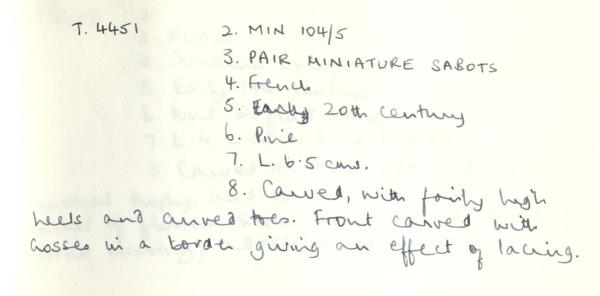 T. 4451 2. MIN 104/5
3. PAIR MINIATURE SABOTS
4. French
5. Early 20th century
6. Pine
7. L. 6.5 cms.
8. Carved, with fairly high
heels and curved toes. Front carved with
crosses in a border giving an effect of lacing.